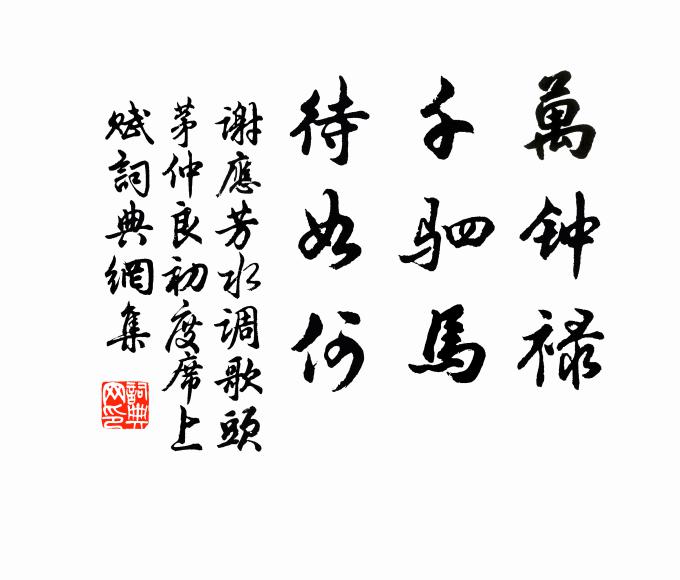 萬钟禄
千驷馬
待如何
谢應芳水调歌頭
茅仲良初度席上
赋詞典網集
詞典网印